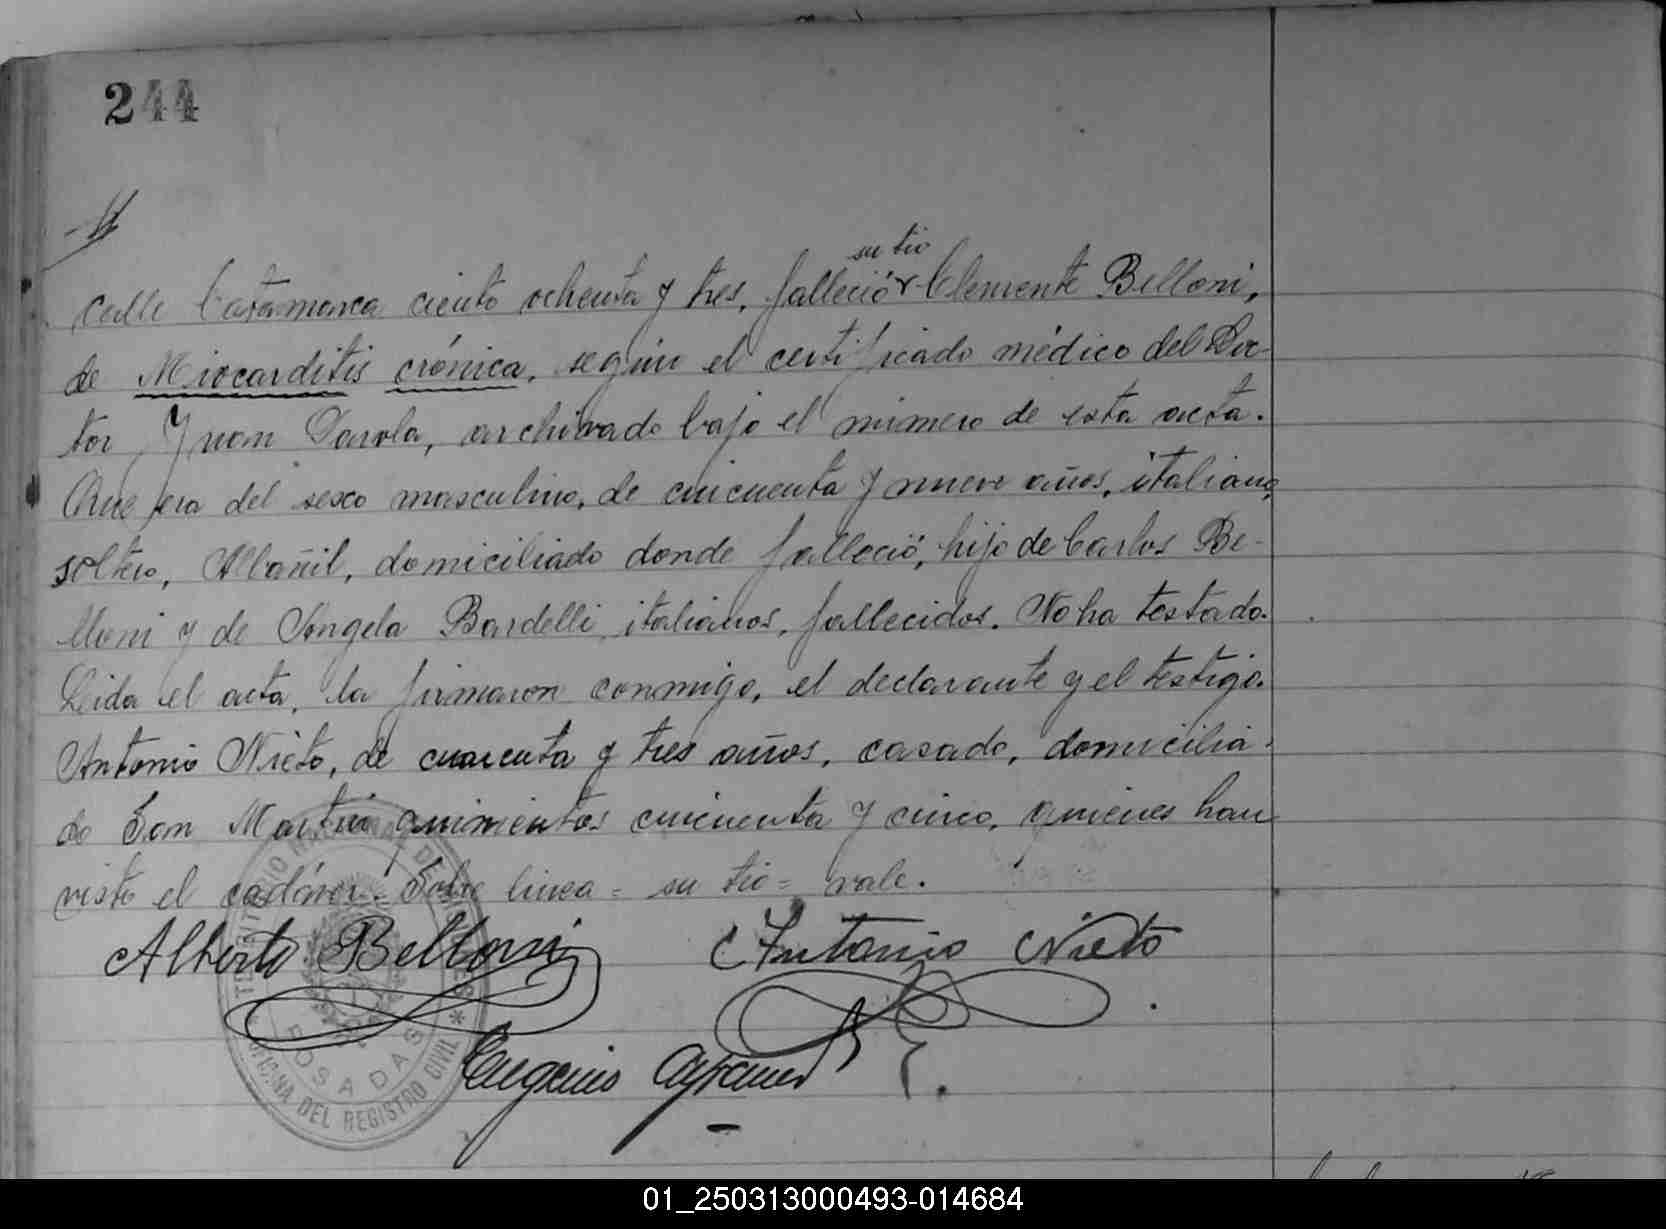 244
su tio
Calle Catamarca ciento ochenta y tres, falleció Clemente Belloni,
de Miocarditis crónica, según el certificado médico del Doc-
tor Juan Darola, archivado bajo el número de esta acta.
Que era del sexo masculino, de cincuenta y nueve años, italiano,
soltero, Albañil, domiciliado donde falleció, hijo de Carlos Be-
lloni y de Angela Bardelli, italianos, fallecidos. No ha testado.
Leida el acta, la firmaron conmigo, el declarante y el testigo.
Antonio Nieto, de cuarenta y tres años, casado, domicilia-
do San Martin quinientos cincuenta y cinco, quienes han
visto el cadáver.= Sobre linea = su tio = vale.
Alberto Belloni Antonio Nieto
Eugenio
TERRITORIO NACIONAL DE MISIONES
POSADAS
OFICINA DEL REGISTRO CIVIL
01_250313000493-014684